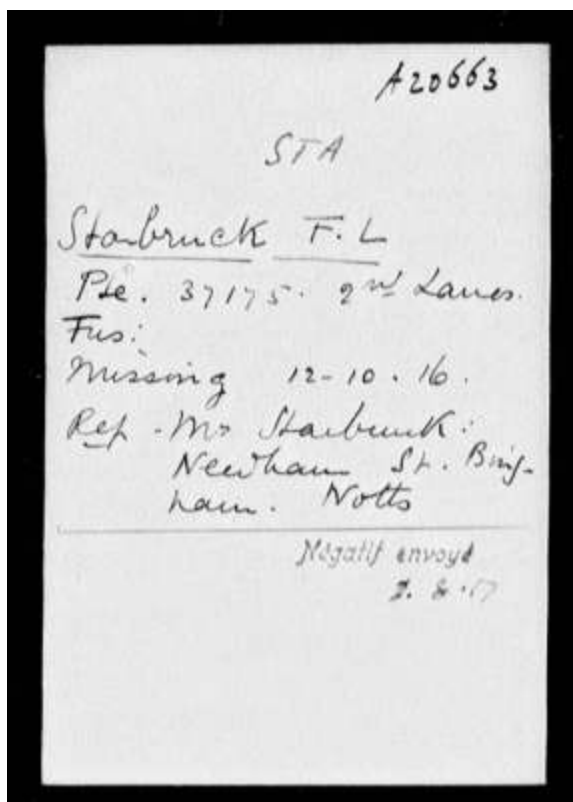 A20663
STA
Starbruck F. L
Pte. 37175. 2nd Lancs.
Fus:
Missing 12-10.16.
Ref. Mr Starbuck:
Newham St. Bing-
ham. Notts
Négatif envoyé
2. 8.17